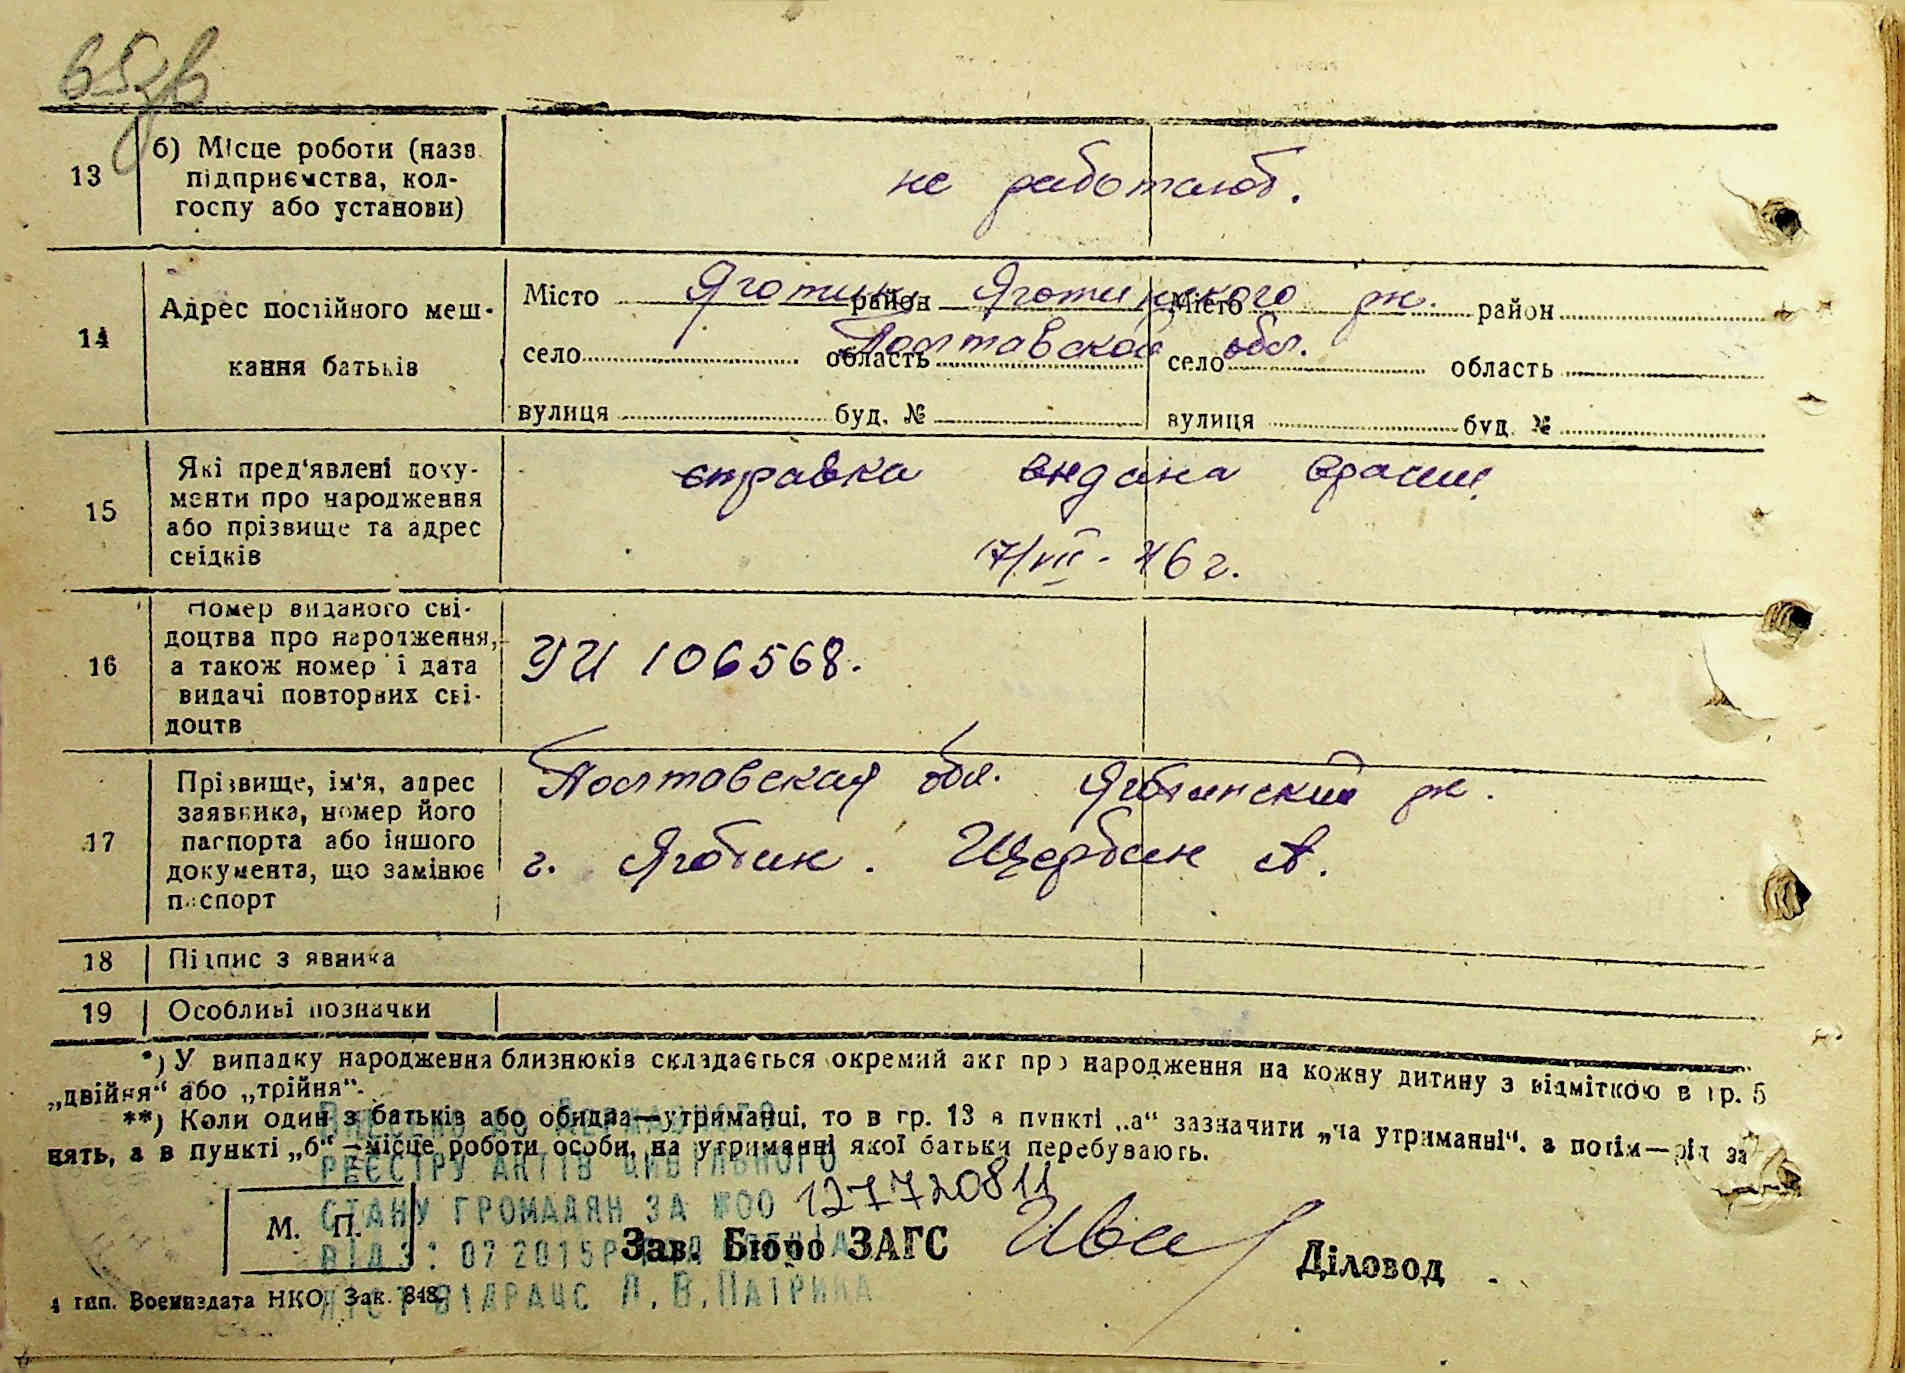 13
б) Місце роботи (назв.
підприємства, кол-
госпу або установи)
не работают.
14
Адрес постійного меш-
кання батьків
Місто Яготин район Яготинского рн. Місто район
село область Полтавской обл. село область
вулиця буд. № вулиця буд. №
15
Які пред'явлені доку-
менти про народження
або прізвище та адрес
свідків
справка видана
17/VII - 46 г.
16
Номер виданого сві-
доцтва про народження,
а також номер і дата
видачі повторних сві-
доцтв
УИ 106568.
17
Прізвище, ім'я, адрес
заявника, номер його
паспорта або іншого
документа, що замінює
паспорт
Полтавская обл. Яготинский рн.
г. Яготин. Щербин А.
18 Підпис заявника
19 Особливі позначки
*) У випадку народження близнюків складається окремий акт про народження на кожну дитину з відміткою в гр. 5
„двійня“ або „трійня“.
**) Коли один з батьків або обидва—утриманці, то в гр. 13 в пункті „а“ зазначити „на утриманні“, а потім—рід за
нять, а в пункті „б“—місце роботи особи, на утриманні якої батьки перебувають.
РЕЄСТРУ АКТІВ ЦИВІЛЬНОГО
СТАНУ ГРОМАДЯН ЗА №00 127720811
М. П.
Зав. Бюро ЗАГС
Діловод
07 2015Р
4 тип. Воениздата НКО. Зак. 848.
ВІДРАЦС Л.В.ПАТРИКА